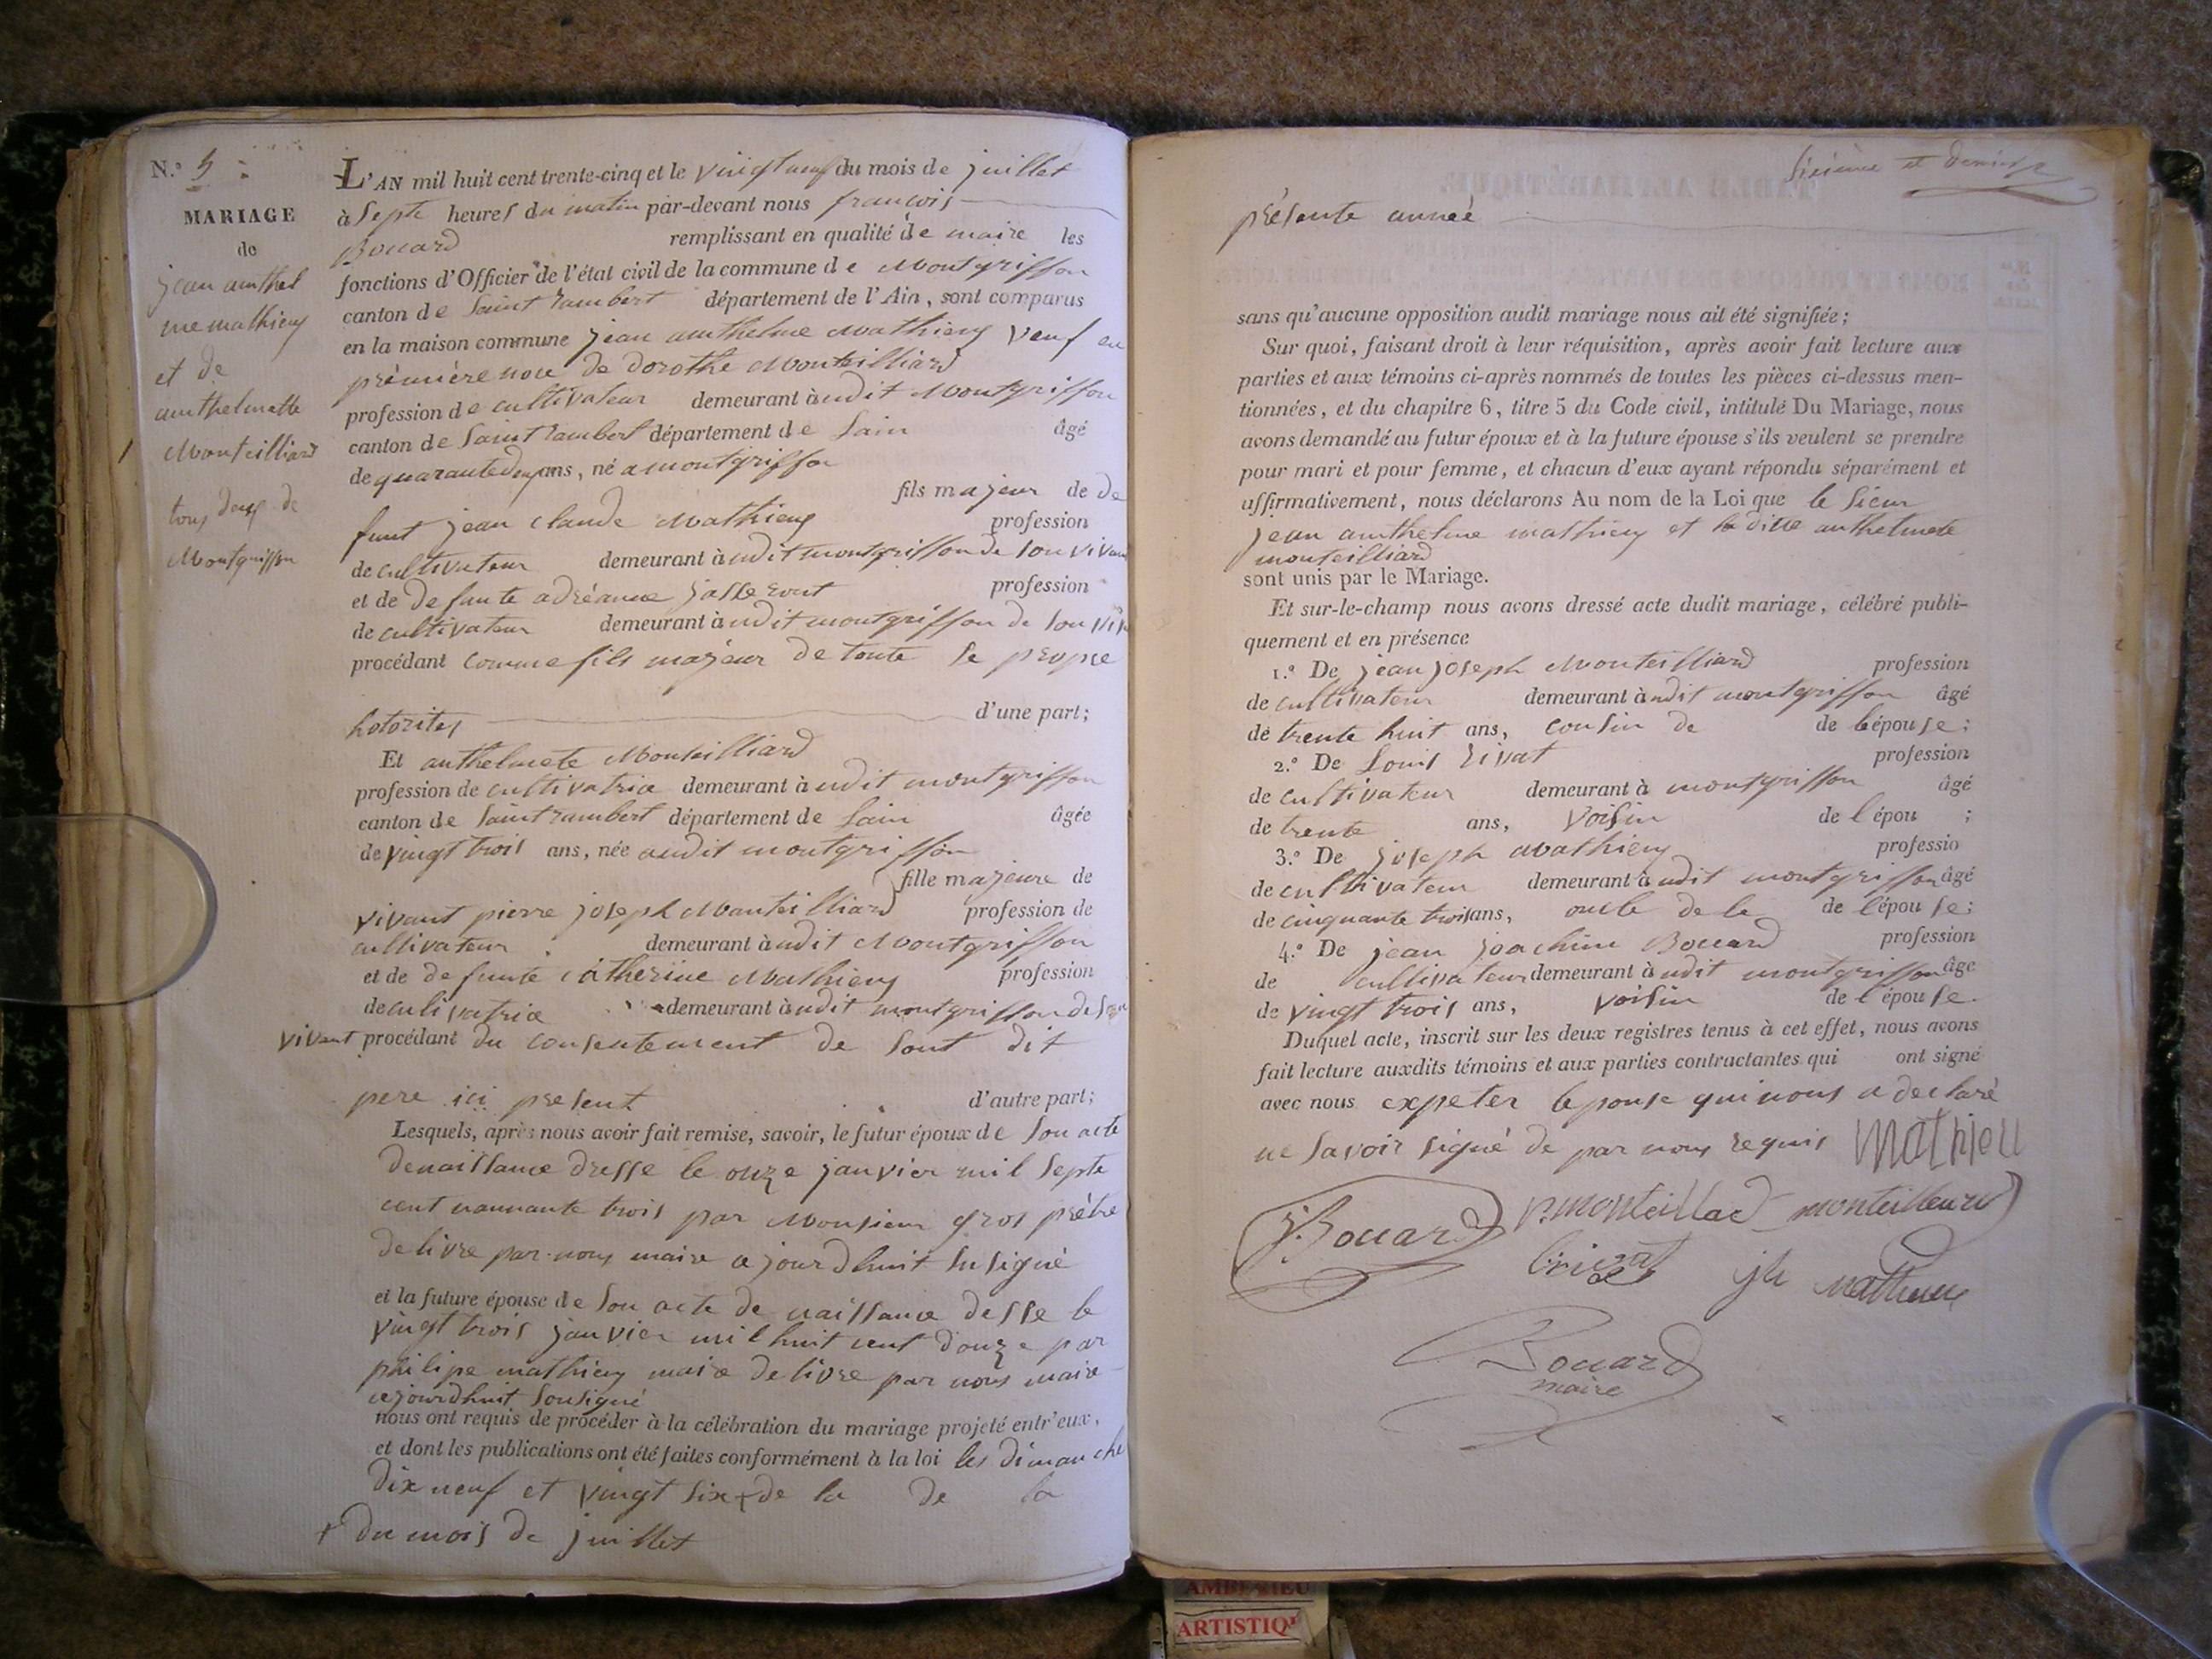 N.º 5
MARIAGE
de
jean anthel
me mathieu
et de
anthelmette
Monteilliard
tous deux de
Montgriffon
L'AN mil huit cent trente-cinq et le vingt neuf du mois de juillet
à septe heures du matin par-devant nous françois
Bouard remplissant en qualité de maire les
fonctions d'Officier de l'état civil de la commune de Montgriffon
canton de Saint rambert département de l'Ain, sont comparus
en la maison commune jean anthelme Mathieu veuf en
première noce de dorothe Monteilliard
profession de cultivateur demeurant à udit Montgriffon
canton de Saint rambert département de Lain âgé
de quarante deux ans, né a montgriffon
fils majeur de de
funt jean claude Mathieu profession
de cultivateur demeurant à udit montgriffon de son vivan
et de defunte adréanne jasseront profession
de cultivateur demeurant à udit montgriffon de son viv
procédant comme fils majeur de toute se propre
hotorites d'une part;
Et anthelmete Monteilliard
profession de cultivatrice demeurant à udit montgriffon
canton de Saint rambert département de Lain âgée
de vingt trois ans, née audit montgriffon
fille majeure de
vivant pierre joseph Monteilliard profession de
cultivateur demeurant à udit Montgriffon
et de defunte catherine Mathieu profession
de culivatrice demeurant à udit montgriffon de son
vivant procédant du consentement de sont dit
pere ici present d'autre part;
Lesquels, après nous avoir fait remise, savoir, le futur époux de son acte
denaissance dresse le onze janvier mil septe
cent nonnante trois par Monsieur gros prêtre
delivre par nous maire a jourdhuit susigné
et la future épouse de son acte de naissance desse le
vingt trois janvier mil huit cent douze par
philipe mathieu maire delivre par nous maire
cejourdhuit sousigné
nous ont requis de procéder à la célébration du mariage projeté entr'eux,
et dont les publications ont été faites conformément à la loi les dimanche
dix neuf et vingt six + de la de la
+ du mois de juillet
Sixième et dernier
présente année
sans qu'aucune opposition audit mariage nous ait été signifiée;
Sur quoi, faisant droit à leur réquisition, après avoir fait lecture aux
parties et aux témoins ci-après nommés de toutes les pièces ci-dessus men-
tionnées, et du chapitre 6, titre 5 du Code civil, intitulé Du Mariage, nous
avons demandé au futur époux et à la future épouse s'ils veulent se prendre
pour mari et pour femme, et chacun d'eux ayant répondu séparément et
affirmativement, nous déclarons Au nom de la Loi que le sieur
jean anthelme mathieu et la dille anthelmete
monteilliard
sont unis par le Mariage.
Et sur-le-champ nous avons dressé acte dudit mariage, célébré publi-
quement et en présence
1.º De jean joseph Monteilliard profession
de cultivateur demeurant à udit montgriffon âgé
de trente huit ans, cousin de de lépouse;
2.º De Louis rivat profession
de cultivateur demeurant à montgriffon âgé
de trente ans, voisin de l'épou ;
3.º De joseph Mathieu professio
de cultivateur demeurant à udit montgriffon âgé
de cinquante trois ans, oncle de le de l'épouse;
4.º De jean joachim Bouard profession
de cultivateur demeurant à udit montgriffon âge
de vingt trois ans, voisin de l'épouse.
Duquel acte, inscrit sur les deux registres tenus à cet effet, nous avons
fait lecture auxdits témoins et aux parties contractantes qui ont signé
avec nous expeter lepouse qui nous a declaré
ne savoir signé de par nous requis Mathieu
J. Bouard p. monteillad monteilleard
L rivat jh mathieu
Bouard
maire
AMBERIEU
ARTISTIQU